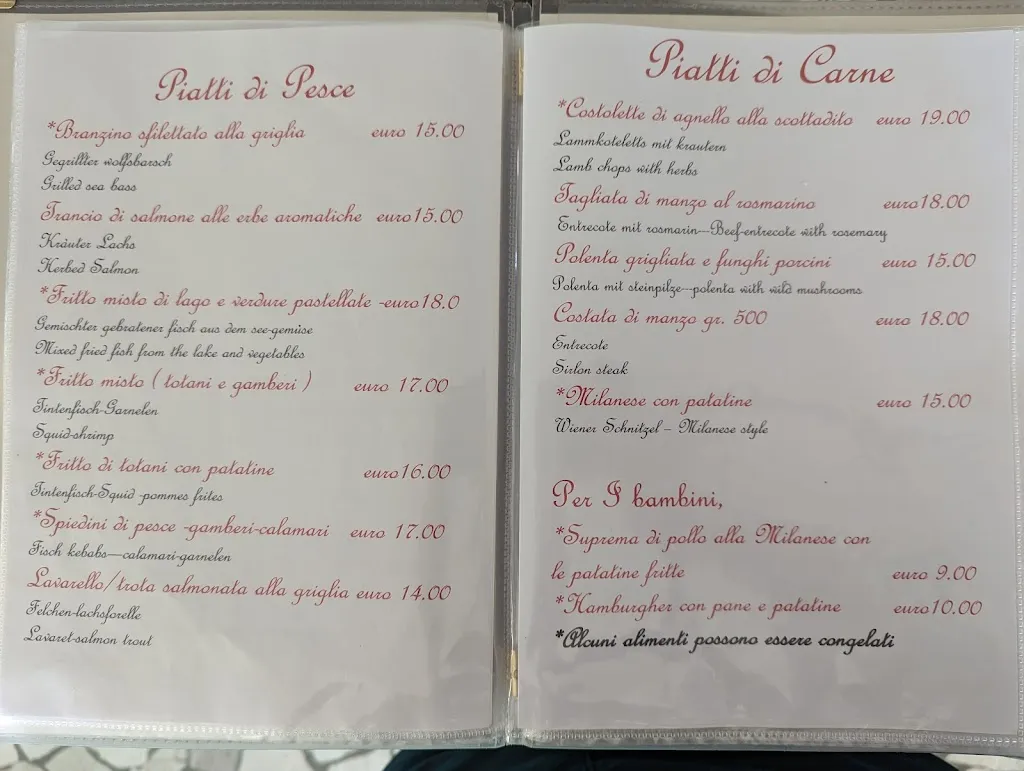 Piatti di Pesce
*Branzino sfilettato alla griglia euro 15.00
Gegrillter wolfsbarsch
Grilled sea bass
Trancio di salmone alle erbe aromatiche euro15.00
Kräuter Lachs
Herbed Salmon
*Fritto misto di lago e verdure pastellate -euro18.0
Gemischter gebratener fisch aus dem see-gemüse
Mixed fried fish from the lake and vegetables
*Fritto misto ( totani e gamberi ) euro 17.00
Tintenfisch-Garnelen
Squid-shrimp
*Fritto di totani con patatine euro16.00
Tintenfisch-Squid -pommes frites
*Spiedini di pesce -gamberi-calamari euro 17.00
Fisch kebabs—calamari-garnelen
Lavarello/trota salmonata alla griglia euro 14.00
Felchen-lachsforelle
Lavaret-salmon trout
Piatti di Carne
*Costolette di agnello alla scottadito euro 19.00
Lammkoteletts mit krautern
Lamb chops with herbs
Tagliata di manzo al rosmarino euro18.00
Entrecote mit rosmarin---Beef-entrecote with rosemary
Polenta grigliata e funghi porcini euro 15.00
Polenta mit steinpilze---polenta with wild mushrooms
Costata di manzo gr. 500 euro 18.00
Entrecote
Sirlon steak
*Milanese con patatine euro 15.00
Wiener Schnitzel – Milanese style
Per I bambini,
*Suprema di pollo alla Milanese con
le patatine fritte euro 9.00
*Hamburgher con pane e patatine euro10.00
*Alcuni alimenti possono essere congelati